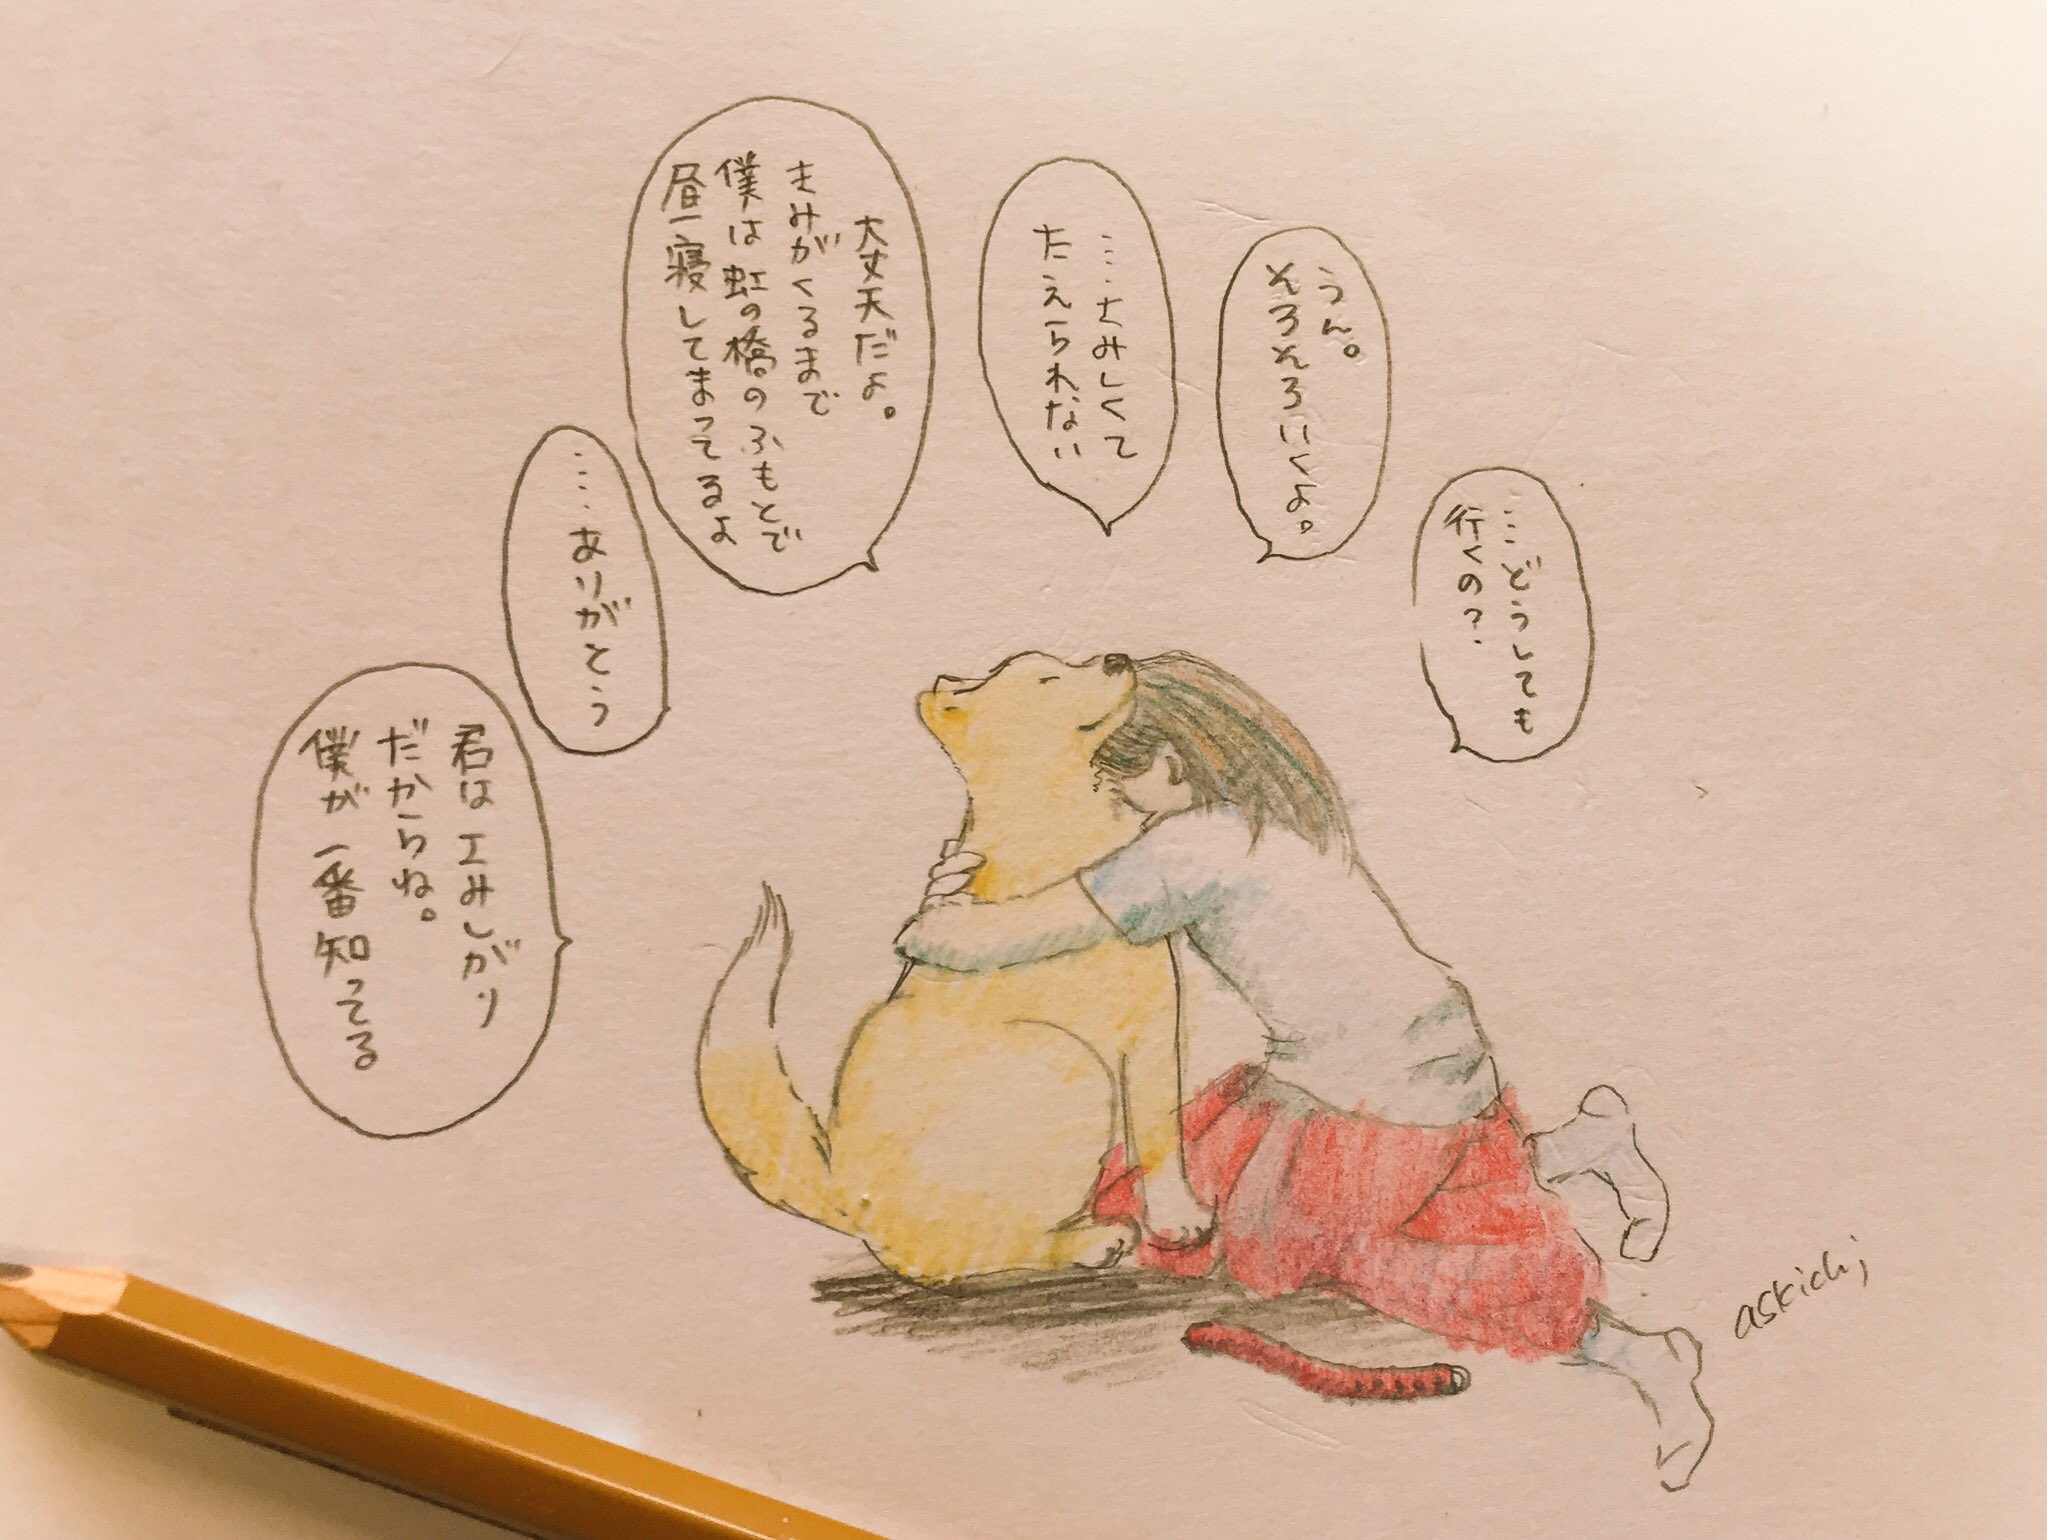 …どうしても
行くの?
うん。
そろそろいくよ。
…さみしくて
たえられない
大丈夫だよ。
きみがくるまで
僕は虹の橋のふもとで
昼寝してまってるよ
…ありがとう
君はさみしがり
だからね。
僕が一番知ってる
askichi